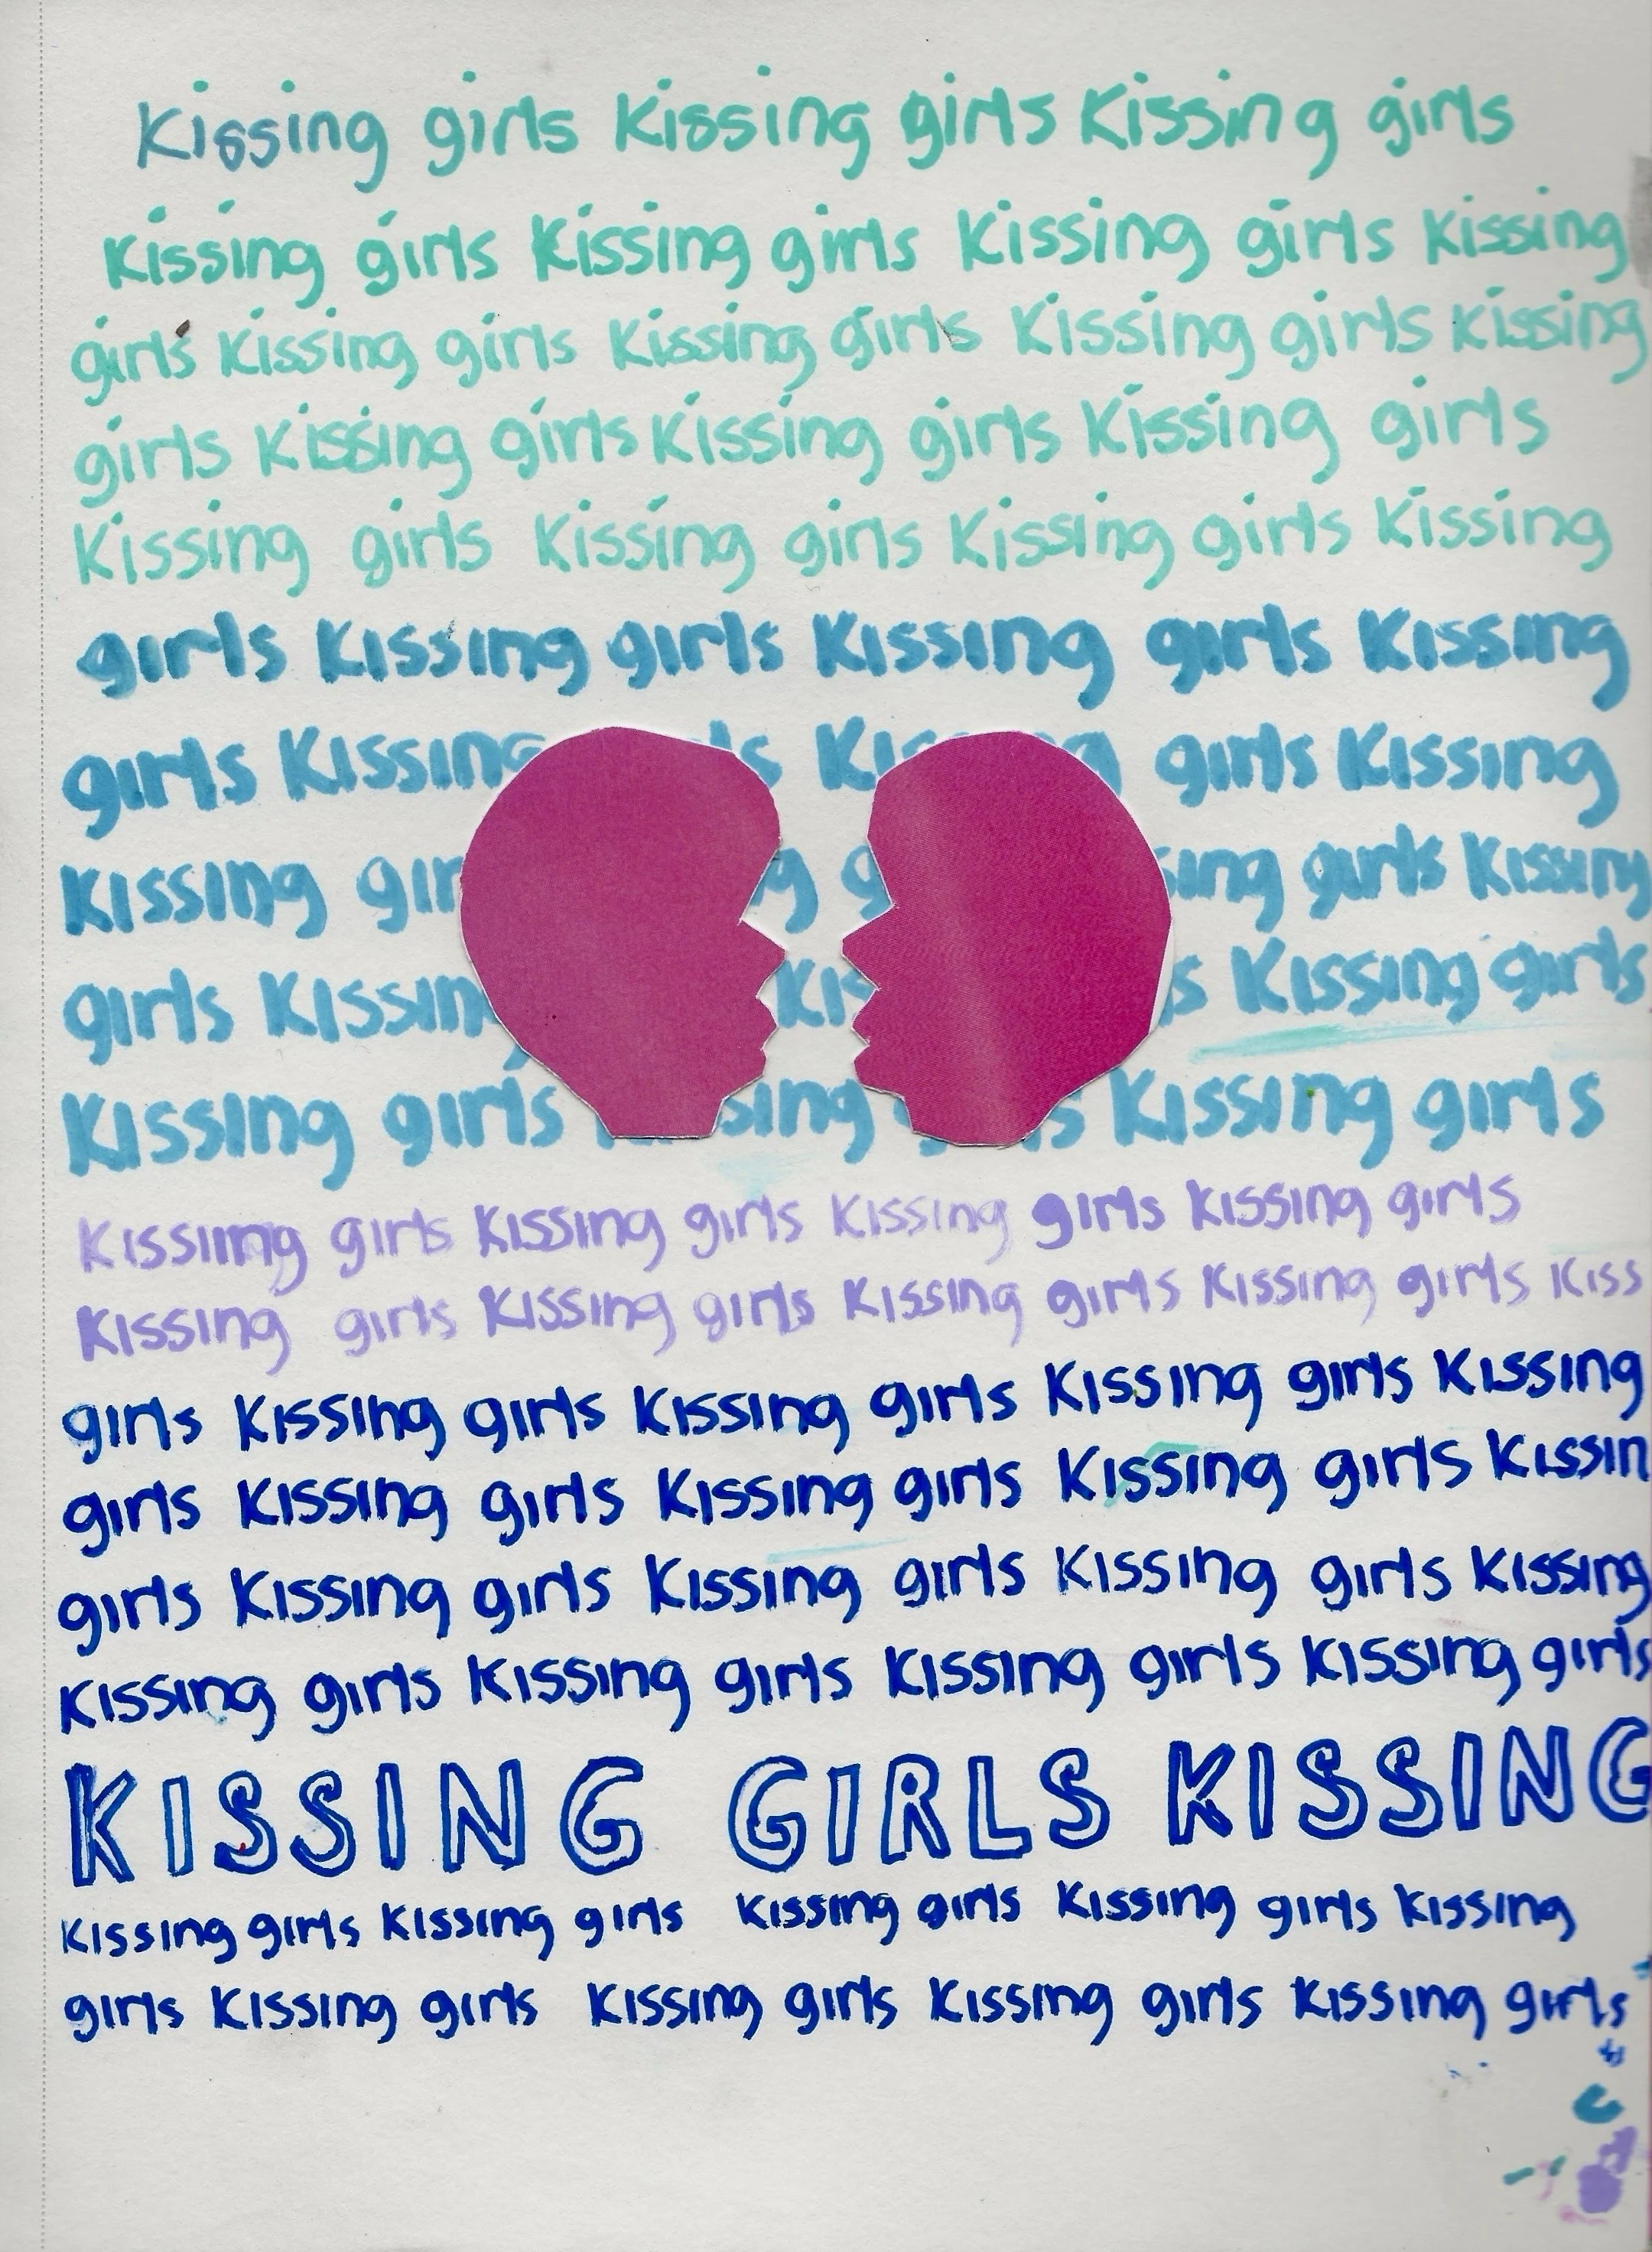 Kissing girls Kissing girls Kissing girls
Kissing girls Kissing girls Kissing girls Kissing
girls Kissing girls Kissing girls Kissing girls Kissing
girls Kissing girls Kissing girls Kissing girls
Kissing girls Kissing girls Kissing girls Kissing
girls Kissing girls Kissing girls Kissing
girls Kissing girls Kissing
Kissing girls Kissing
girls Kissing Kissing girls
Kissing girls Kissing girls
Kissing girls Kissing girls Kissing girls Kissing girls
Kissing girls Kissing girls Kissing girls Kissing girls Kiss
girls Kissing girls Kissing girls Kissing girls Kissing
girls Kissing girls Kissing girls Kissing girls Kissin
girls Kissing girls Kissing girls Kissing girls Kissing
Kissing girls Kissing girls Kissing girls Kissing girls
KISSING GIRLS KISSING
Kissing girls Kissing girls Kissing girls Kissing girls Kissing
girls Kissing girls Kissing girls Kissing girls Kissing girls